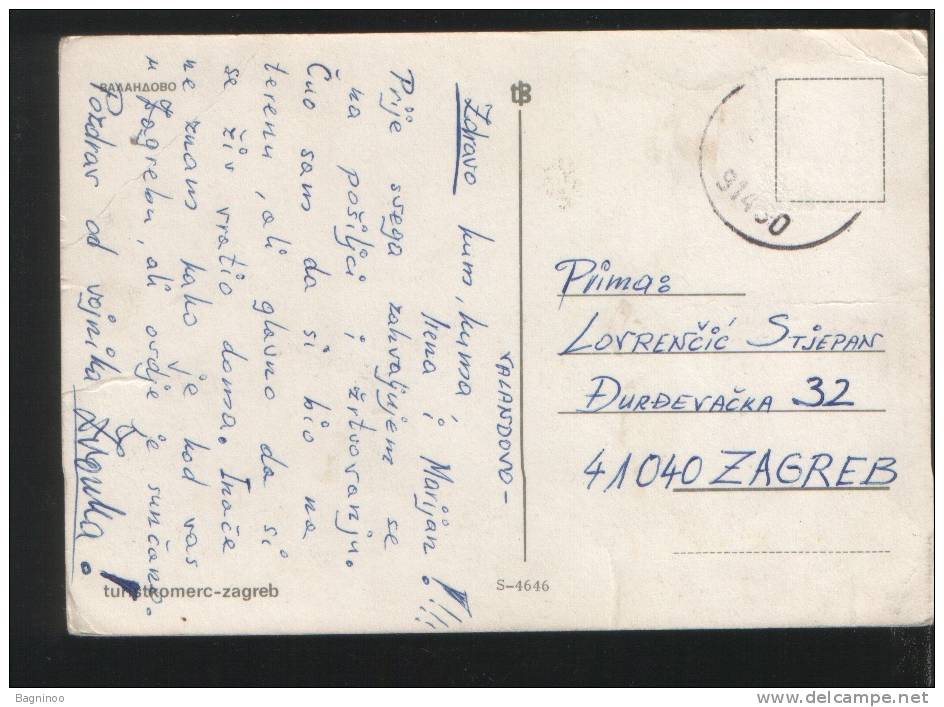 ВАЛАНДОВО
VALANDOVO-
Zdravo kum, kuma,
Nena i Marijan!!!
Prije svega zahvaljujem se
na pošiljci i žrtvovanju.
Čuo sam da si bio na
terenu, ali glavno da si
se živ vratio doma. Inače
ne znam kako je kod vas
u Zagrebu, ali ovdje je sunčano.
Pozdrav od vojnika
turistkomerc-zagreb
S-4646
91460
Prima:
LOVRENČIĆ STJEPAN
ĐURĐEVAČKA 32
41040 ZAGREB
Bagninoo
http://www.delcampe.net